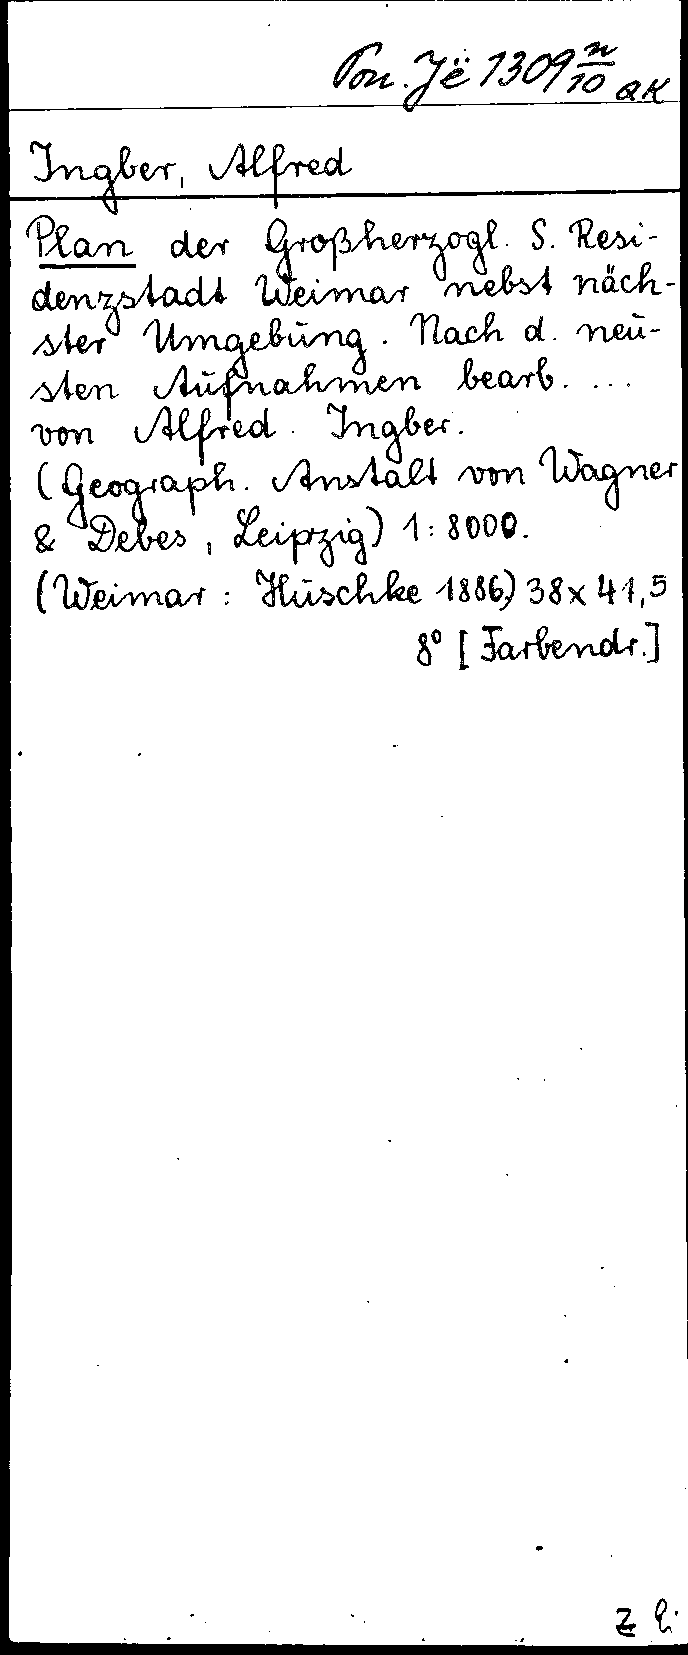 Pon. Jë 1309 n/10 QK
Ingber, Alfred
Plan der Großherzogl. S. Resi-
denzstadt Weimar nebst näch-
ster Umgebung. Nach d. neu-
sten Aufnahmen bearb. ...
von Alfred Ingber.
(Geograph. Anstalt von Wagner
& Debes, Leipzig) 1:8000.
(Weimar: Huschke 1886) 38 x 41,5
8° [Farbendr.]